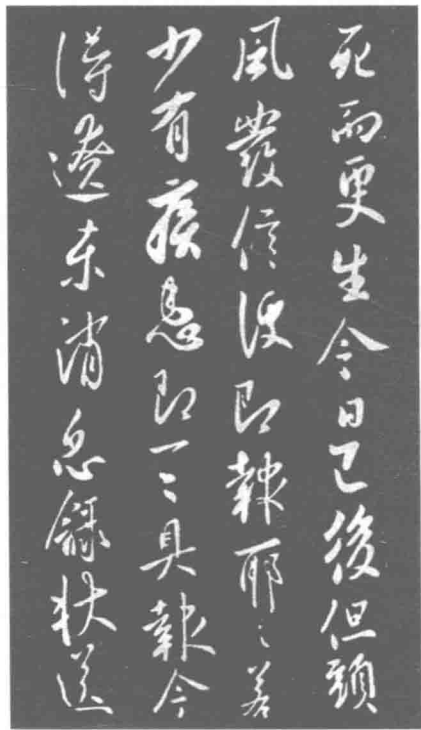 死而更生今日已後但頭
風發信便即報耶〻若
少有疾患即一〻具報今
得遼东消息錄狀送